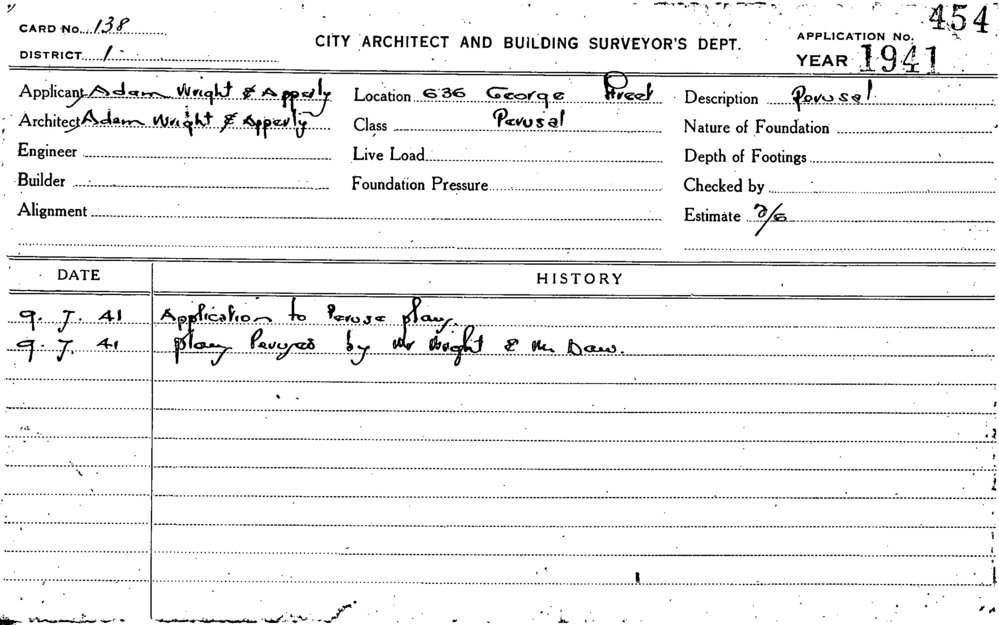 CARD No. 138
DISTRICT 1
CITY ARCHITECT AND BUILDING SURVEYOR'S DEPT.
APPLICATION No. 454
YEAR 1941
Applicant Adam Wright & Apperly
Architect Adam Wright & Apperly
Engineer
Builder
Alignment
Location 636 George Street
Class Perusal
Live Load
Foundation Pressure
Description Perusal
Nature of Foundation
Depth of Footings
Checked by
Estimate 2/6
DATE HISTORY
9. 7. 41 Application to Peruse plans.
9. 7. 41 plans Perused by Mr Wright & Mr Daw.